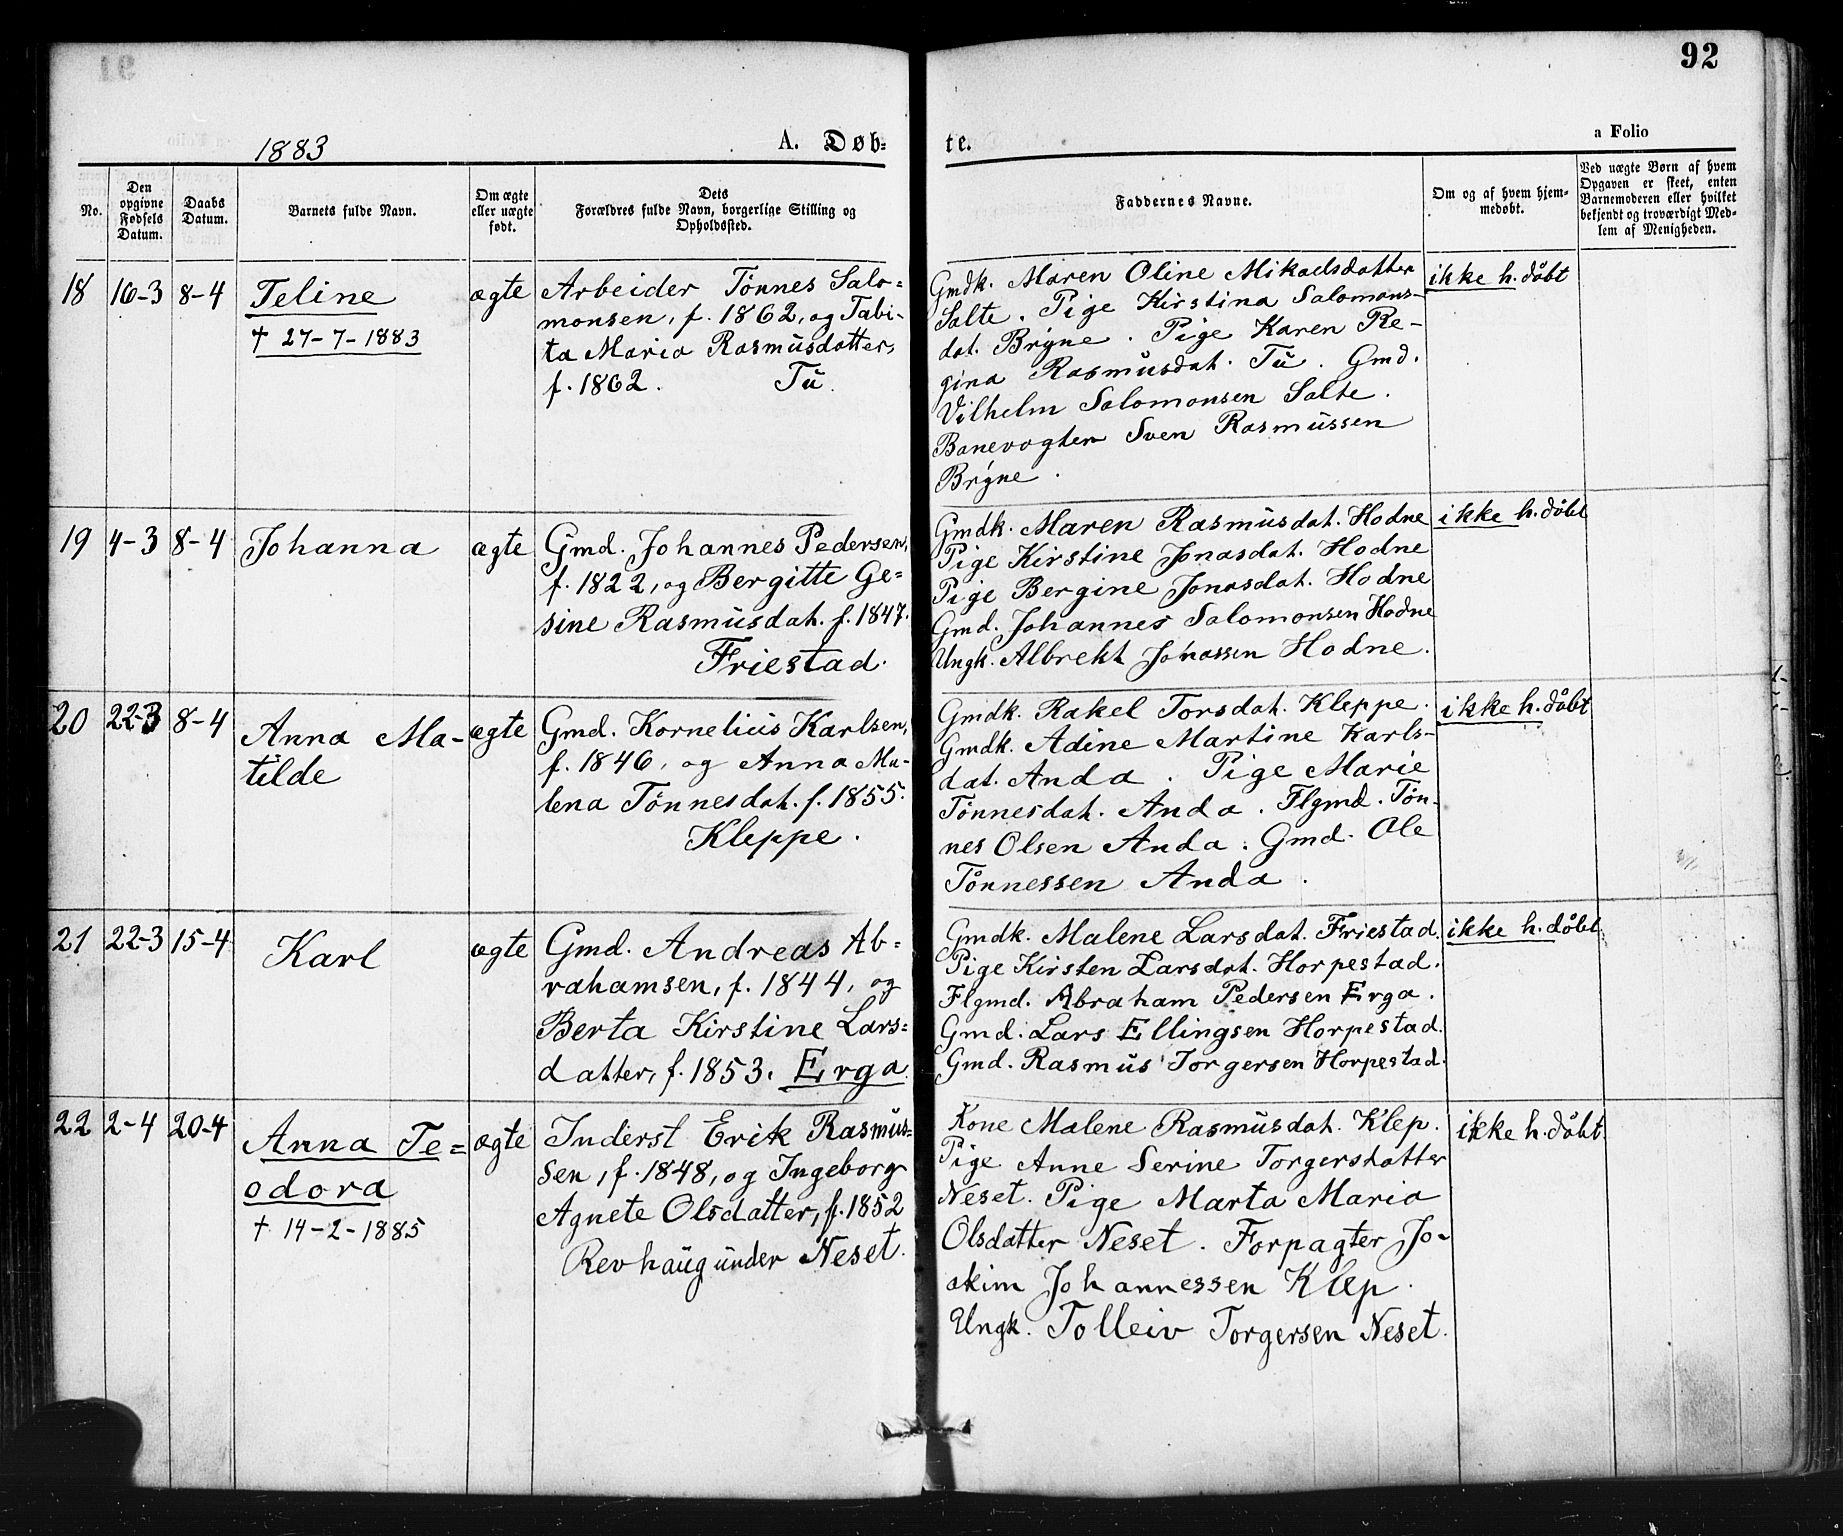 92
1883
A. Døb=
te.
a Folio
No.
Den opgivne Fødsels Datum.
Daabs Datum.
Barnets fulde Navn.
Om ægte eller uægte født.
Dets
Forældres fulde Navn, borgerlige Stilling og
Opholdssted.
Faddernes Navne.
Om og af hvem hjem-
medøbt.
Ved uægte Børn af hvem
Opgaven er skeet, enten
Barnemoderen eller hvilket
bekjendt og troværdigt Med-
lem af Menigheden.
18 16-3 8-4
Teline
† 27-7-1883
ægte
Arbeider Tönnes Salo=
monsen, f. 1862, og Tabi-
ta Maria Rasmusdatter,
f. 1862. Tu.
Gmdk. Maren Oline Mikaelsdatter
Salte. Pige Kirstina Salomons-
dat. Bryne. Pige Karen Re-
gina Rasmusdat. Tu. Gmd.
Vilhelm Salomonsen Salte.
Banevogter Sven Rasmussen
Bryne.
ikke h. döbt
19 4-3 8-4
Johanna
ægte
Gmd. Johannes Pedersen,
f. 1822, og Bergitte Ge=
sine Rasmusdat. f. 1847.
Friestad.
Gmdk. Maren Rasmusdat. Hodne
Pige Kirstine Jonasdat. Hodne
Pige Bergine Jonasdat. Hodne
Gmd. Johannes Salomonsen Hodne
Ungk. Albrekt Jonassen Hodne.
ikke h. döbt
20 22-3 8-4
Anna Ma-
tilde
ægte
Gmd. Kornelius Karlsen,
f. 1846, og Anna Ma-
lena Tönnesdat. f. 1855.
Kleppe.
Gmdk. Rakel Torsdat. Kleppe.
Gmdk. Adine Martine Karls-
dat. Anda. Pige Marie
Tönnesdat. Anda. Flgmd. Tön-
nes Olsen Anda. Gmd. Ole
Tönnessen Anda.
ikke h. döbt
21 22-3 15-4
Karl
ægte
Gmd. Andreas Ab=
rahamsen, f. 1844, og
Berta Kirstine Lars=
datter, f. 1853. Erga.
Gmdk. Malene Larsdat. Friestad.
Pige Kirsten Larsdat. Horpestad.
Flgmd. Abraham Pedersen Erga.
Gmd. Lars Ellingsen Horpestad.
Gmd. Rasmus Torgersen Horpestad.
ikke h. döbt.
22 2-4 20-4
Anna Te=
odora
† 14-2-1885
ægte
Inderst Erik Rasmus=
sen, f. 1848, og Ingeborg
Agnete Olsdatter, f. 1852
Revhaug under Neset.
Kone Malene Rasmusdat. Klep.
Pige Anne Serine Torgersdatter
Neset. Pige Marta Maria
Olsdatter Neset. Forpagter Jo-
akim Johannessen Klep.
Ungk. Tolleiv Torgersen Neset.
ikke h. döbt